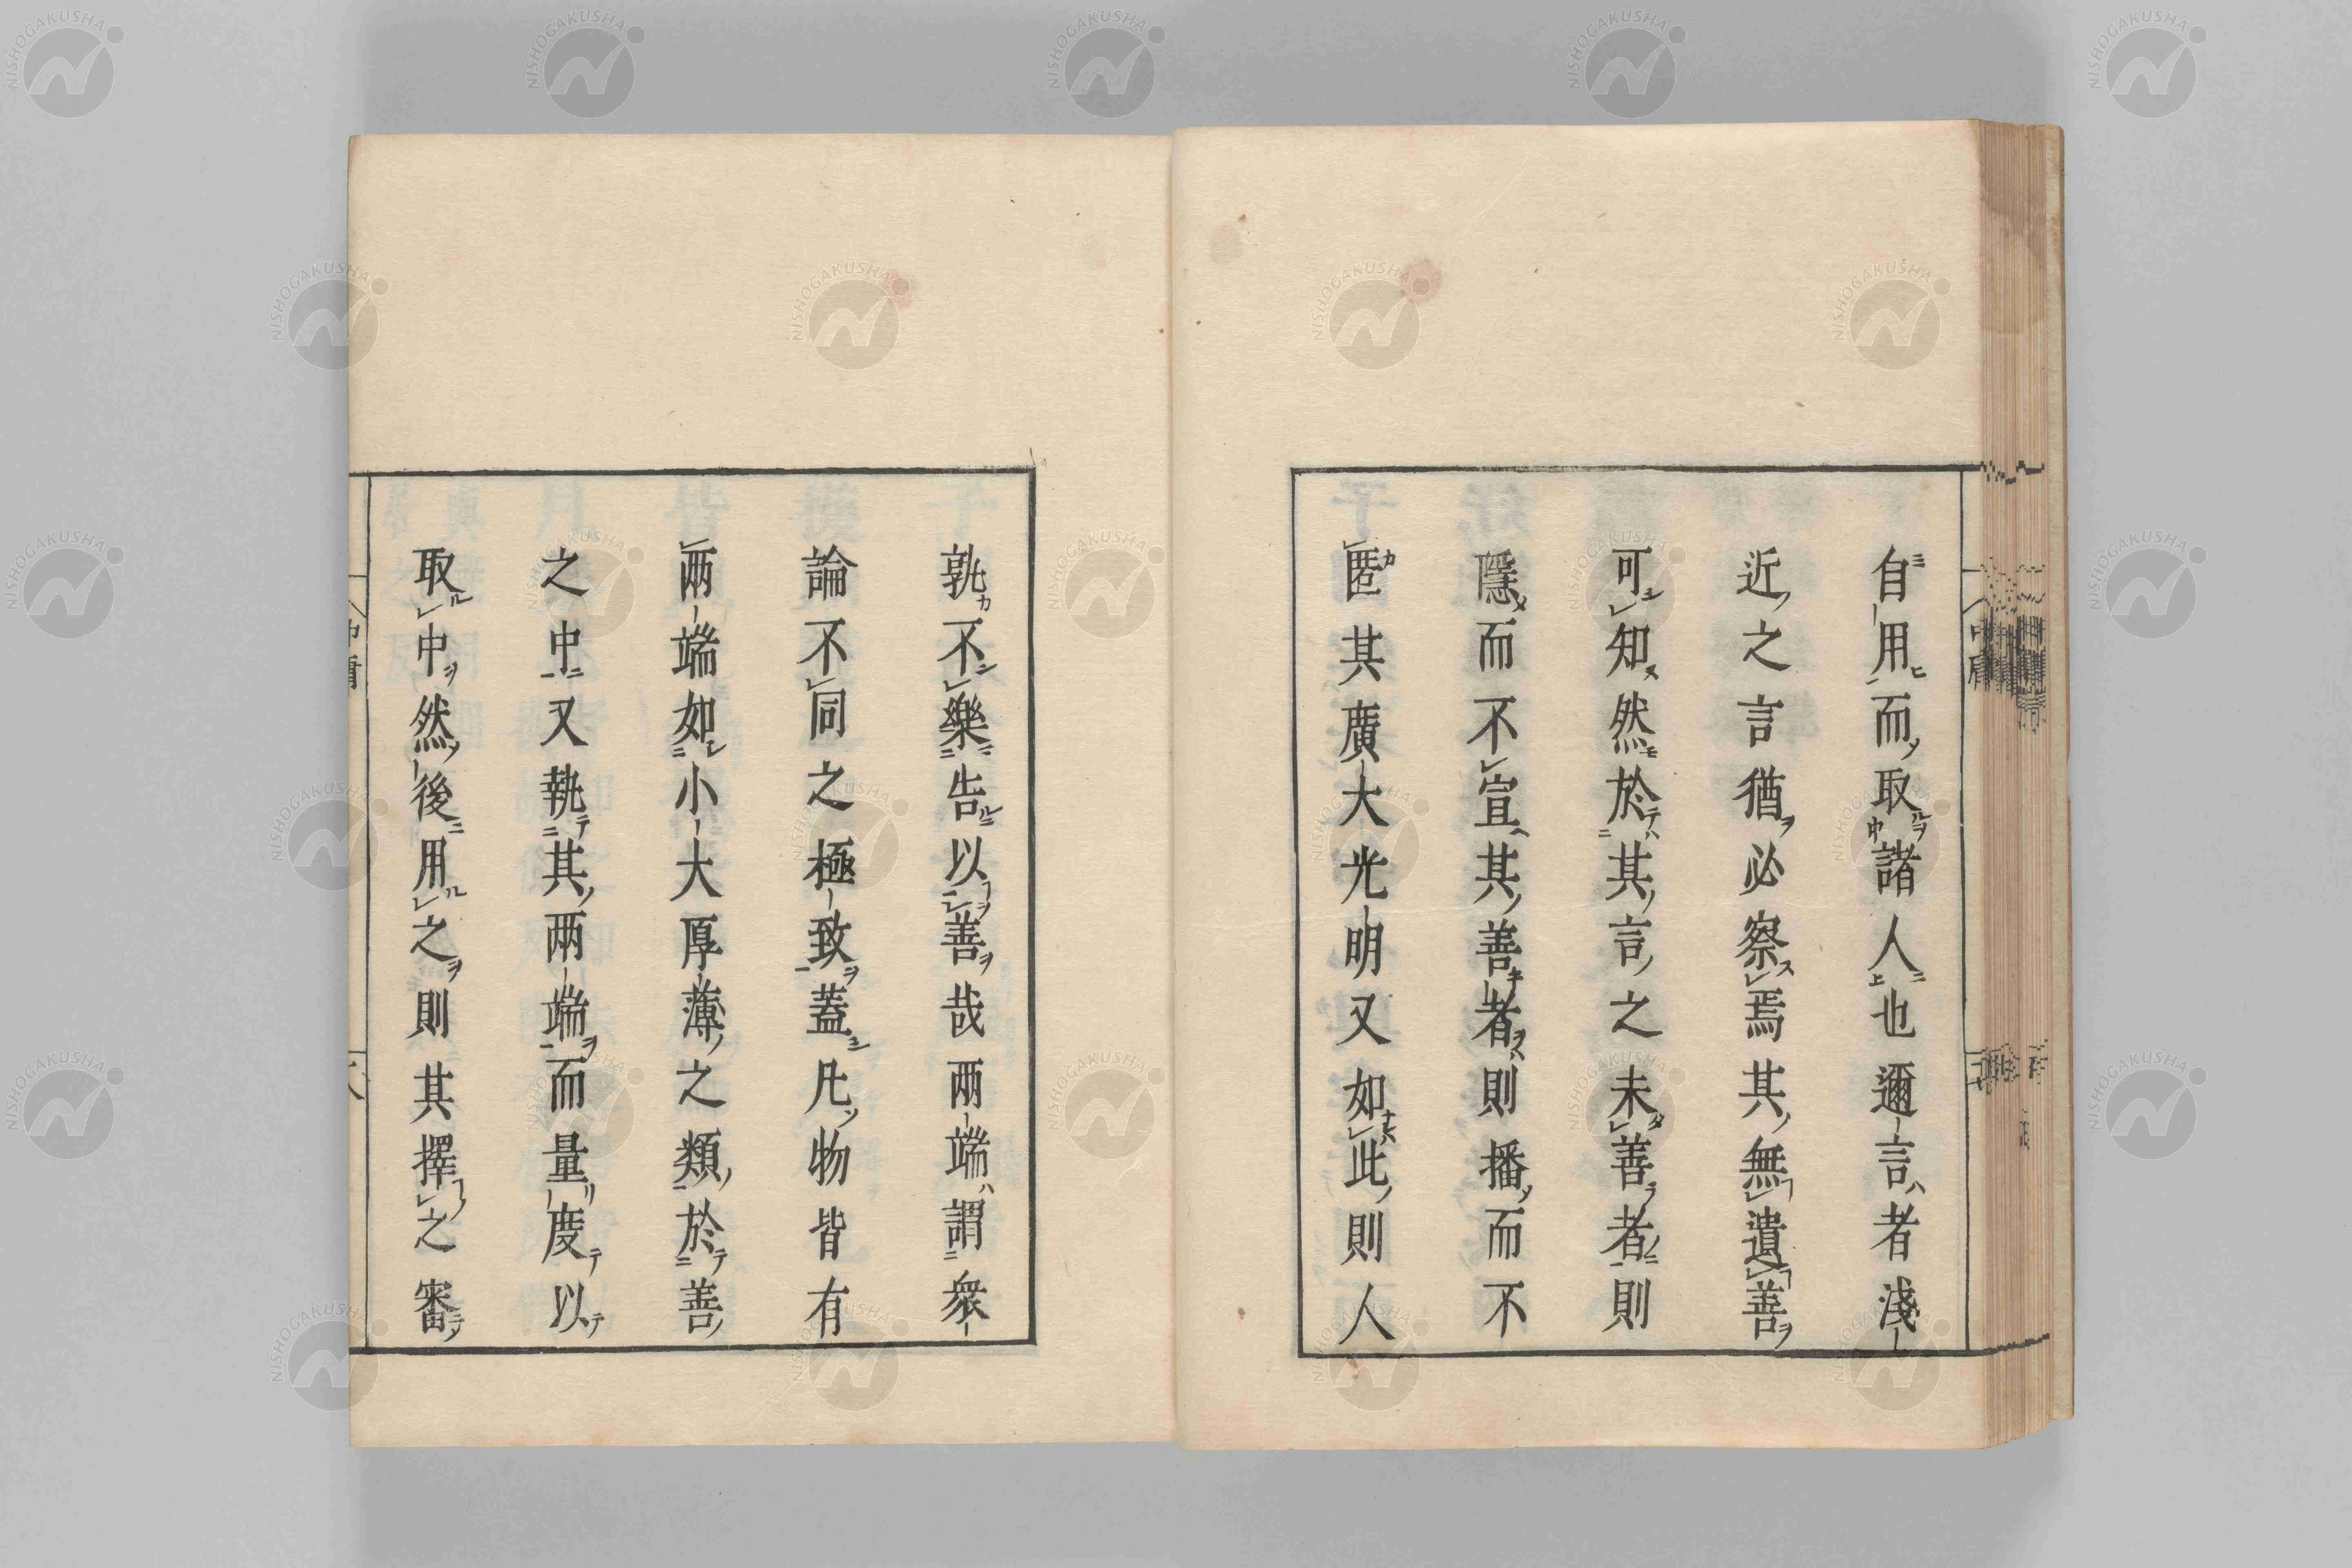 自用而取諸人也邇言者淺
近之言猶必察焉其無遺善
可知然於其言之未善者則
隱而不宣其善者則播而不
匿其廣大光明又如此則人
孰不樂告以善哉兩端謂衆
論不同之極致蓋凡物皆有
兩端如小大厚薄之類於善
之中又執其兩端而量度以
取中然後用之則其擇之審
中庸
八
NISHOGAKUSHA